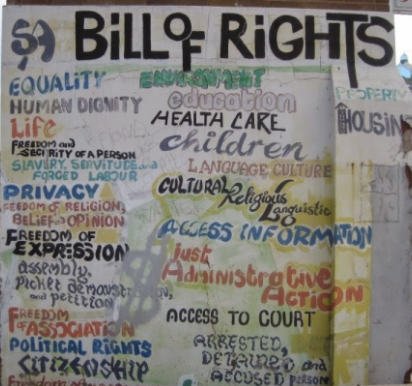 SA BILL OF RIGHTS
EQUALITY
HUMAN DIGNITY
Life
FREEDOM and
SECIRITY OF A PERSON
SLAVERY, SERVITUDE and
FORGED LABOUR
PRIVACY
FREEDOM OF RELIGION,
BELIEF and OPINION
FREEDOM OF
EXPRESSION
assembly,
picket demonstration,
and petition
FREEDOM
OF ASSOCIATION
POLITICAL RIGHTS
CITIZENSHIP
ENVIRONMENT
education
HEALTH CARE
children
LANGUAGE CULTURE
CULTURAL Religious
Linguistic
ACCESS INFORMATION
just
Administrative
Action
ACCESS TO COURT
ARRESTED,
DETAINED and
ACCUSED Person
PROPERTY
HOUSIN